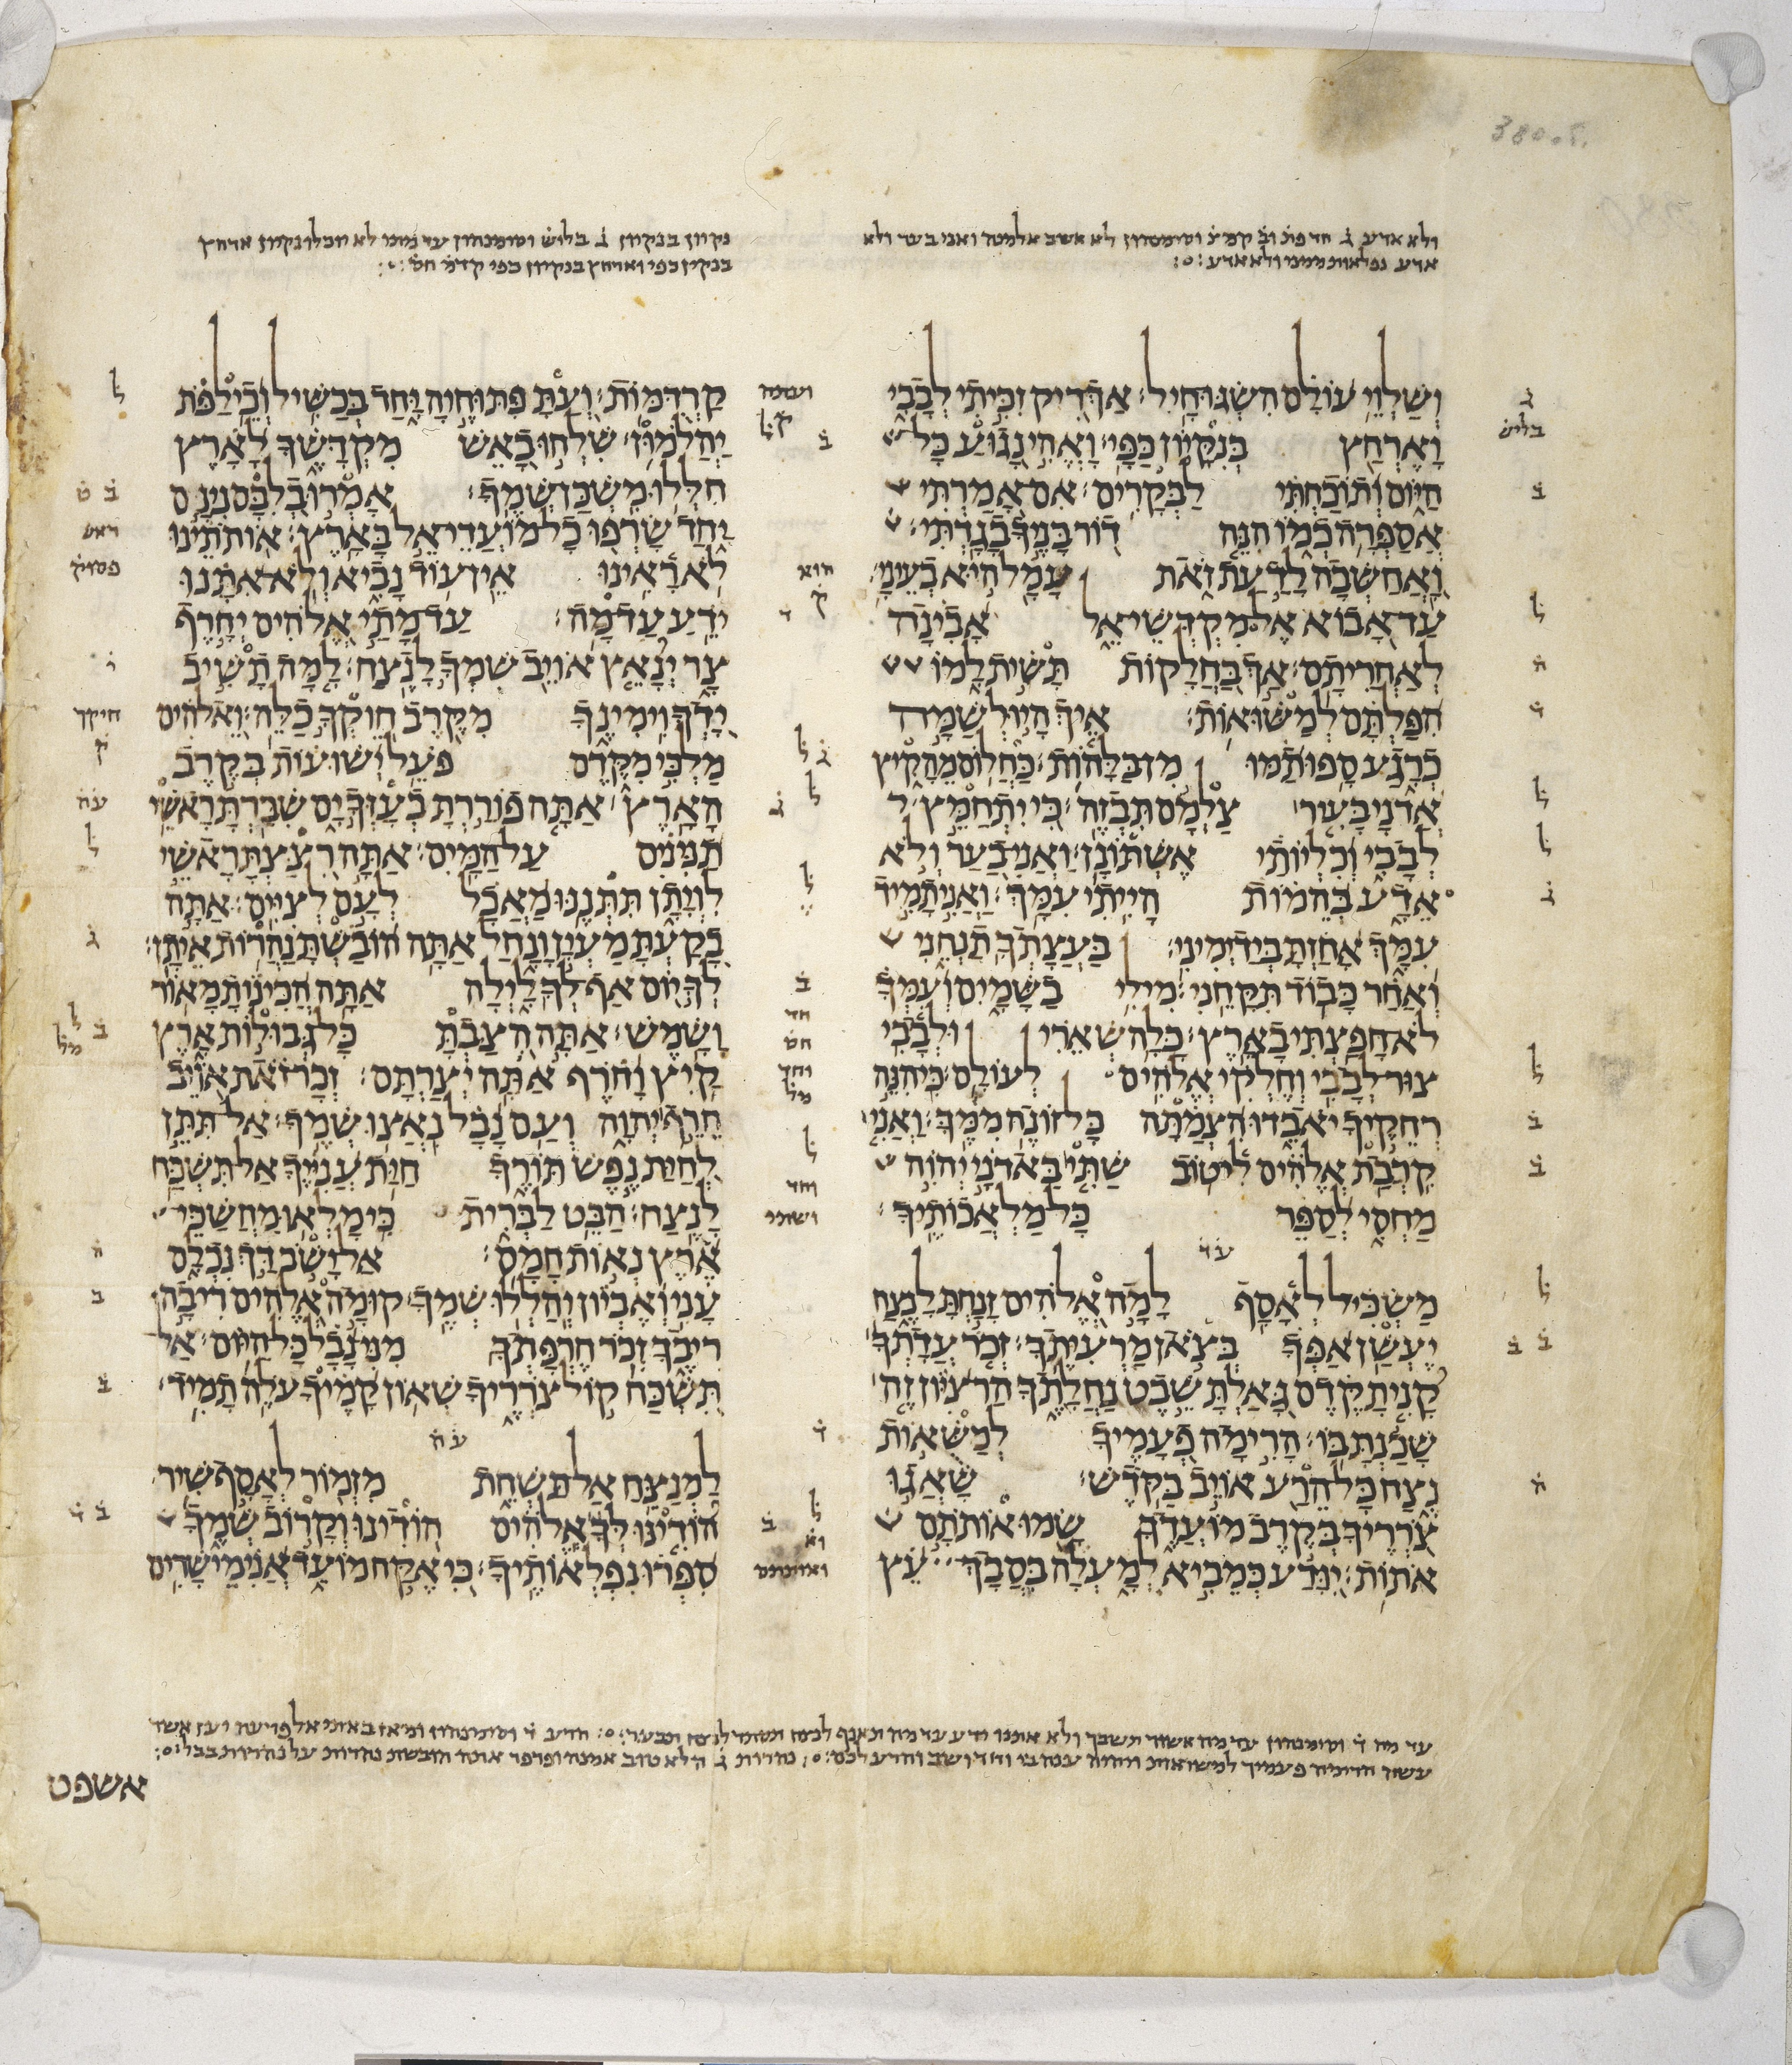 ולא אדע ג חד פת וב קמצ וסימנהון לא אשב אלמנה ואני בער ולא
אדע נפלאות ממני ולא אדע
נקיון בנקיון ג בליש וסימנהון עד מתי לא יוכלו נקיון ארחץ
בנקיון כפי וארחץ בנקיון כפי קדמ
ושלוי עולם השגו חיל׃ אך ריק זכיתי לבבי
וארחץ בנקיון כפי׃ ואהי נגוע כל
היום ותוכחתי לבקרים׃ אם אמרתי
אספרה כמו הנה דור בניך בגדתי׃
ואחשבה לדעת זאת עמל היא בעיני׃
עד אבוא אל מקדשי אל אבינה
לאחריתם׃ אך בחלקות תשית למו
הפלתם למשואות׃ איך היו לשמה
כרגע ספו תמו מן בלהות׃ כחלום מהקיץ
אדני בעיר צלמם תבזה׃ כי יתחמץ
לבבי וכליותי אשתונן׃ ואני בער ולא
אדע בהמות הייתי עמך׃ ואני תמיד
עמך אחזת ביד ימיני׃ בעצתך תנחני
ואחר כבוד תקחני׃ מי לי בשמים ועמך
לא חפצתי בארץ׃ כלה שארי ולבבי
צור לבבי וחלקי אלהים לעולם׃ כי הנה
רחקיך יאבדו הצמתה כל זונה ממך׃ ואני
קרבת אלהים לי טוב שתי באדני יהוה
מחסי לספר כל מלאכותיך׃
עד
משכיל לאסף למה אלהים זנחת לנצח
יעשן אפך בצאן מרעיתך׃ זכר עדתך
קנית קדם גאלת שבט נחלתך הר ציון זה
שכנת בו׃ הרימה פעמיך למשאות
נצח כל הרע אויב בקדש׃ שאגו
צרריך בקרב מועדך שמו אותתם
אתות׃ יודע כמביא למעלה בסבך עץ
קרדמות׃ ועת פתוחיה יחד בכשיל וכילפת
יהלמון׃ שלחו באש מקדשך לארץ
חללו משכן שמך׃ אמרו בלבם נינם
יחד שרפו כל מועדי אל בארץ׃ אותתינו
לא ראינו אין עוד נביא ולא אתנו
ידע עד מה׃ עד מתי אלהים יחרף
צר ינאץ אויב שמך לנצח׃ למה תשיב
ידך וימינך מקרב חוקך כלה׃ ואלהים
מלכי מקדם פעל ישועות בקרב
הארץ׃ אתה פוררת בעזך ים שברת ראשי
תנינים על המים׃ אתה רצצת ראשי
לויתן תתננו מאכל לעם לציים׃ אתה
בקעת מעין ונחל אתה הובשת נהרות איתן׃
לך יום אף לך לילה אתה הכינות מאור
ושמש׃ אתה הצבת כל גבולות ארץ
קיץ וחרף אתה יצרתם׃ זכר זאת אויב
חרף יהוה ועם נבל נאצו שמך׃ אל תתן
לחית נפש תורך חית ענייך אל תשכח
לנצח׃ הבט לברית כי מלאו מחשכי
ארץ נאות חמס׃ אל ישב דך נכלם
עני ואביון יהללו שמך׃ קומה אלהים ריבה
ריבך זכר חרפתך מני נבל כל היום׃ אל
תשכח קול צרריך שאון קמיך עלה תמיד׃
עה
למנצח אל תשחת מזמור לאסף שיר
הודינו לך אלהים הודינו וקרוב שמך
ספרו נפלאותיך׃ כי אקח מועד אני מישרים
עד מה ד וסימנהון עד מה אשור תשבך ולא אתנו ידע עד מה תאנף לנצח תסתר לנצח תבער׃ הרע ד וסימנהון ומאז באתי אל פרעה יען אשר
עשון הרימה פעמיך למשואות והיה ענה בו וחד ושוב והרע לכם׃ נהרות ג הלא טוב אמנה ופרפר אתה הובשת נהרות על נהרות בבל׃
אשפט